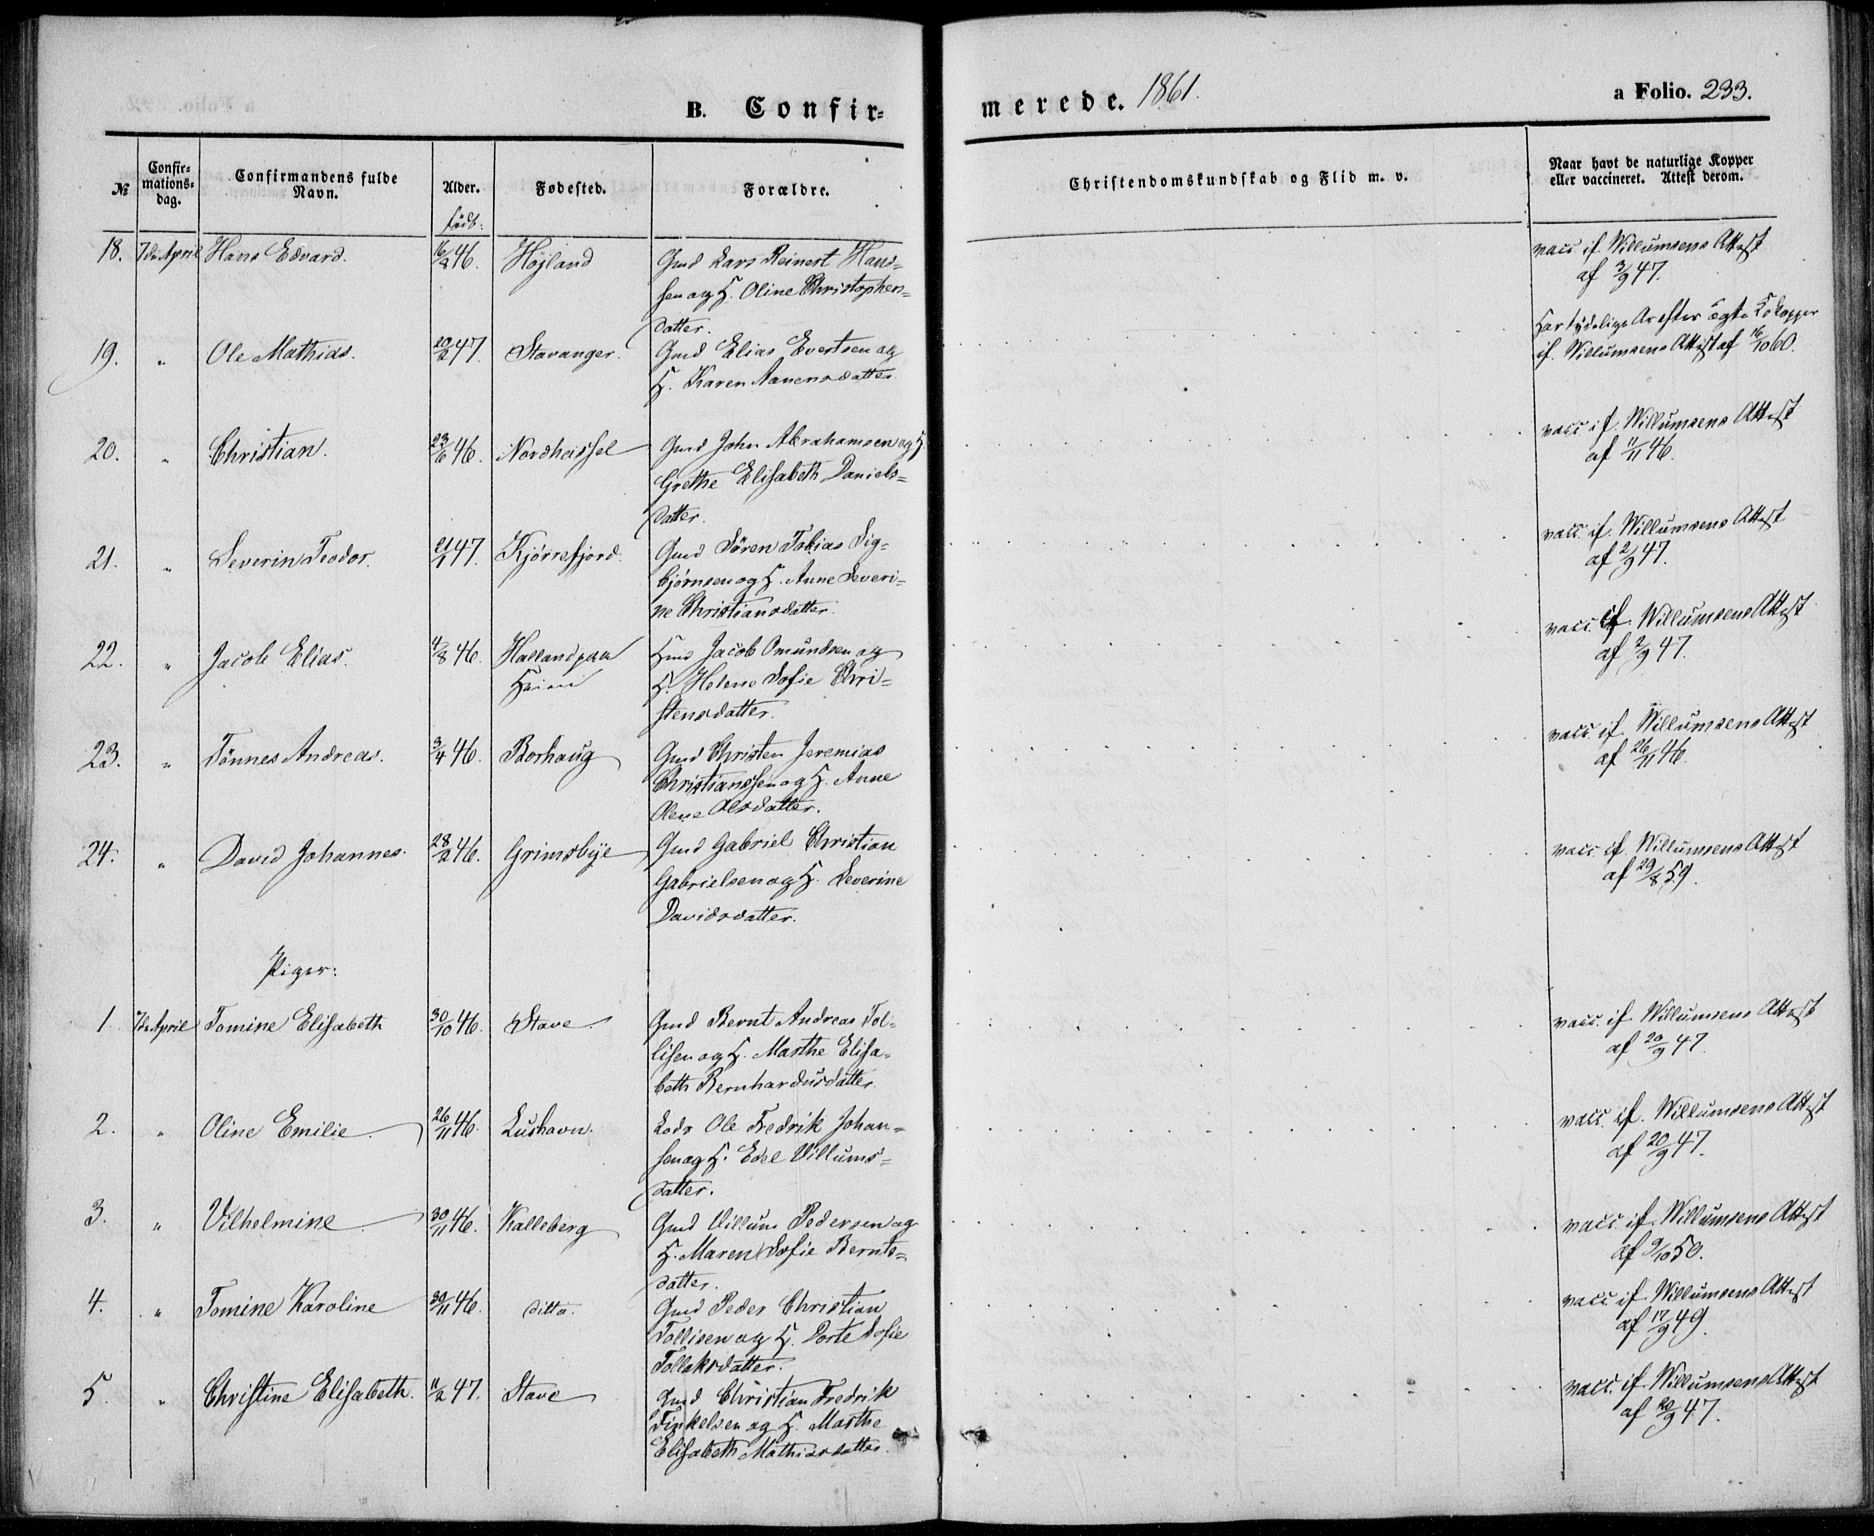 B. Confir-
merede. 1861.
a Folio. 233.
№
Confir-
mations-
dag.
Confirmandens fulde
Navn.
Alder.
født.
Fødested.
Forældre.
Christendomskundskab og Flid m. v.
Naar havt de naturlige Kopper
eller vaccineret. Attest derom.
18. 7de April Hans Edvard. 16/8 46. Højland Gmd Lars Reinert Han-
sen og H. Oline Christophers-
datter.
vacc. if. Willumsens Attest
af 3/9 47.
19. " Ole Mathias. 20/2 47. Stavanger. Gmd Elias Evertsen og
H. Karen Aanensdatter
Har tydelige Ar efter ægte Kokopper
if. Willumsens Attest af 16/10 60.
20. " Christian. 23/6 46. Nordhassel Gmd John Abrahamsen og H.
Grethe Elisabeth Daniels-
datter.
vacc. if. Willumsens Attest
af 11/11 46.
21. " Severin Teodor. 21/1 47. Kjørrefjord. Gmd Sören Tobias Sig-
bjørnsen og H. Anne Severi-
ne Christiansdatter.
vacc. if. Willumsens Attest
af 2/9 47.
22. " Jacob Elias. 4/8 46. Halland paa
Gmd Jacob Omundsen og
H. Helene Sofie Chri-
stensdatter.
vacc. if. Willumsens Attest
af 2/9 47.
23. " Tönnes Andreas. 3/4 46. Borhaug Gmd Christen Jeremias
Christianssen og H. Anne
Olene Olsdatter.
vacc. if. Willumsens Attest
af 26/11 46.
24. " David Johannes. 28/2 46. Grimsbye Gmd Gabriel Christian
Gabrielsen og H. Severine
Davidsdatter.
vacc. if. Willumsens Attest
af 29/8 59.
Piger:
1 7de April Tomine Elisabeth 30/10 46. Stave Gmd Bernt Andreas Tol-
lisen og H. Marthe Elisa-
beth Bernhardusdatter.
vacc. if. Willumsens Attest
af 20/9 47.
2. " Oline Emilie 26/11 46. Lushavn. Lods Ole Fredrik Johan-
sen og H. Edel Villums-
datter.
vacc. if. Willumsens Attest
af 20/9 47.
3. " Vilhelmine 30/11 46. Kalleberg Gmd Villum Pedersen og
H. Maren Sofie Bernts-
datter.
vacc. if. Willumsens Attest
af 9/10 50.
4. " Tomine Karoline 30/11 46. ditto. Gmd Peder Christian
Tollisen og H. Dorte Sofie
Tollaksdatter.
vacc. if. Willumsens Attest
af 17/9 49.
5 " Christine Elisabeth. 11/2 47. Stave Gmd Christian Fredrik
Tinkelsen og H. Marthe
Elisabeth Mathiasdatter.
vacc. if. Willumsens Attest
af 20/9 47.